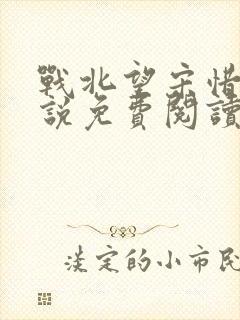 戰北望宋惜
說免費閱讀
淡定的小市民